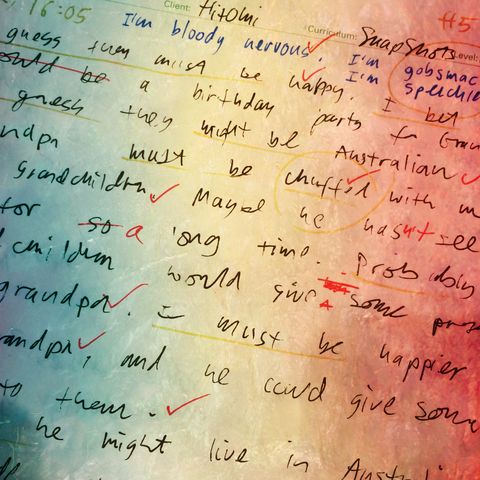 16:05 Client: Hitomi
Curriculum: Snapshots Level: H5
I'm bloody nervous. I'm gobsmac
I'm speechle
guess they must be happy. I bet
would be a birthday party for Gran
guess they might be Australian
ndpa must be chuffed with
Grandchildren. Maybe he hasn't see
for so a long time. Probably
children would give some pres
grandpa. must be happier
randpa, and he could give some
to them.
he might live in Austral